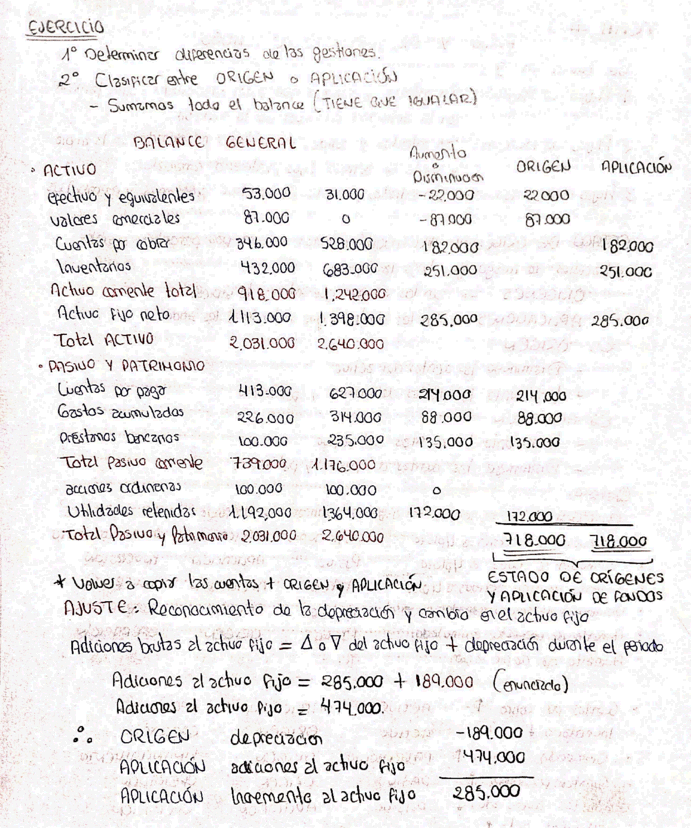 EJERCICIO
1º Determinar diferencias de las gestiones.
2º Clasificar entre ORIGEN o APLICACIÓN
- Sumamos todo el balance (TIENE QUE IGUALAR)
BALANCE GENERAL
Aumento o Disminucion ORIGEN APLICACIÓN
• ACTIVO
efectivo y equivalentes 53.000 31.000 -22.000 22000
valores comerciales 87.000 0 -87.000 87.000
Cuentas por cobrar 346.000 528.000 182.000 182.000
Inventarios 432.000 683.000 251.000 251.000
Activo corriente total 918.000 1.242.000
Activo Fijo neto 1.113.000 1.398.000 285.000 285.000
Total ACTIVO 2.031.000 2.640.000
• PASIVO Y PATRIMONIO
Cuentas por pagar 413.000 627.000 214.000 214.000
Gastos acumulados 226.000 314.000 88.000 88.000
Préstamos bancarios 100.000 235.000 135.000 135.000
Total Pasivo corriente 739.000 1.176.000
acciones ordinarias 100.000 100.000 0
Utilidades retenidas 1.192,000 1364.000 172.000 172.000
Total Pasivo y Patrimonio 2,031.000 2,640.000 718.000 718.000
* Volver a copiar las cuentas + ORIGEN y APLICACIÓN
ESTADO DE ORÍGENES
Y APLICACIÓN DE FONDOS
AJUSTE: Reconocimiento de la depreciación y cambio en el activo fijo
Adiciones brutas al activo fijo = Δ o ∇ del activo fijo + depreciación durante el periodo
Adiciones al activo fijo = 285.000 + 189.000 (enunciado)
Adiciones al activo fijo = 474.000.
∴ ORIGEN depreciación -189.000
APLICACIÓN adiciones al activo fijo 474.000
APLICACIÓN Incremento al activo fijo 285.000